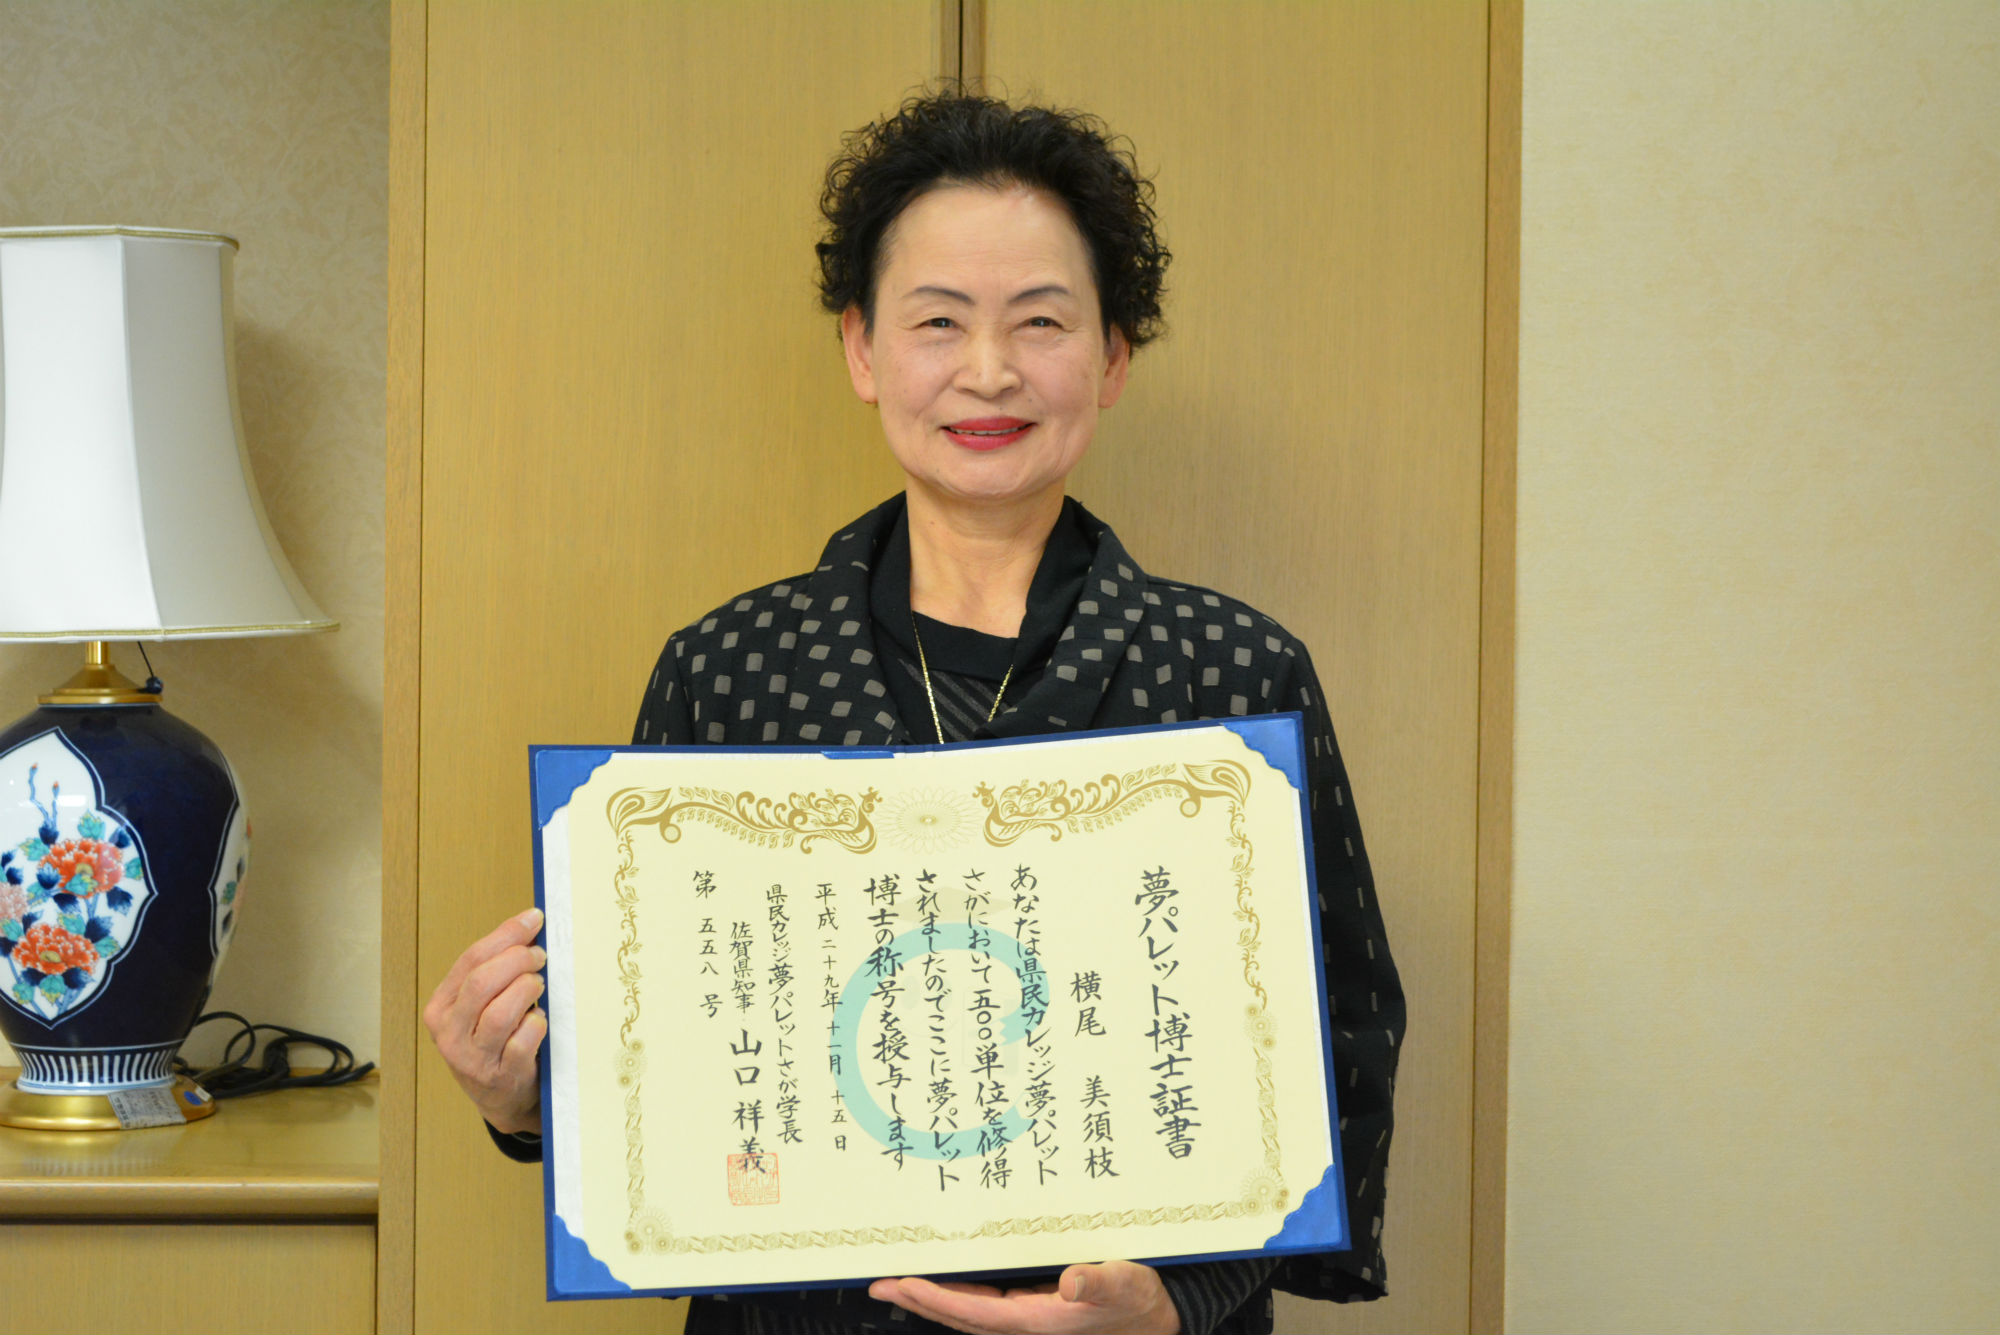 夢パレット博士証書
横尾 美須枝
あなたは県民カレッジ夢パレット
さがにおいて五〇〇単位を修得
されましたのでここに夢パレット
博士の称号を授与します
平成二十九年十一月十五日
県民カレッジ夢パレットさが学長
佐賀県知事 山口祥義
第 五五八 号